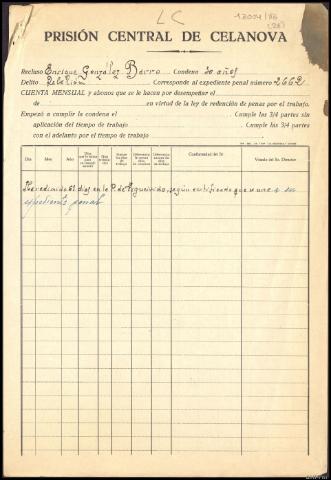 LC
PRISIÓN CENTRAL DE CELANOVA
Recluso Enrique González Barro Condena 30 años
Delito Rebelión Corresponde al expediente penal número 2662
CUENTA MENSUAL y abonos que se le hacen por desempeñar el
de en virtud de la ley de redención de penas por el trabajo.
Empezó a cumplir la condena el Cumple las 3/4 partes sin
aplicación del tiempo de trabajo Cumple las 3/4 partes
con el adelanto por el tiempo de trabajo
Día Mes Año Conformidad del Sr. Visado del Sr. Director
Ha redimido 61 días en la P. de Figueirido, según certificado que se une a su
expediente penal